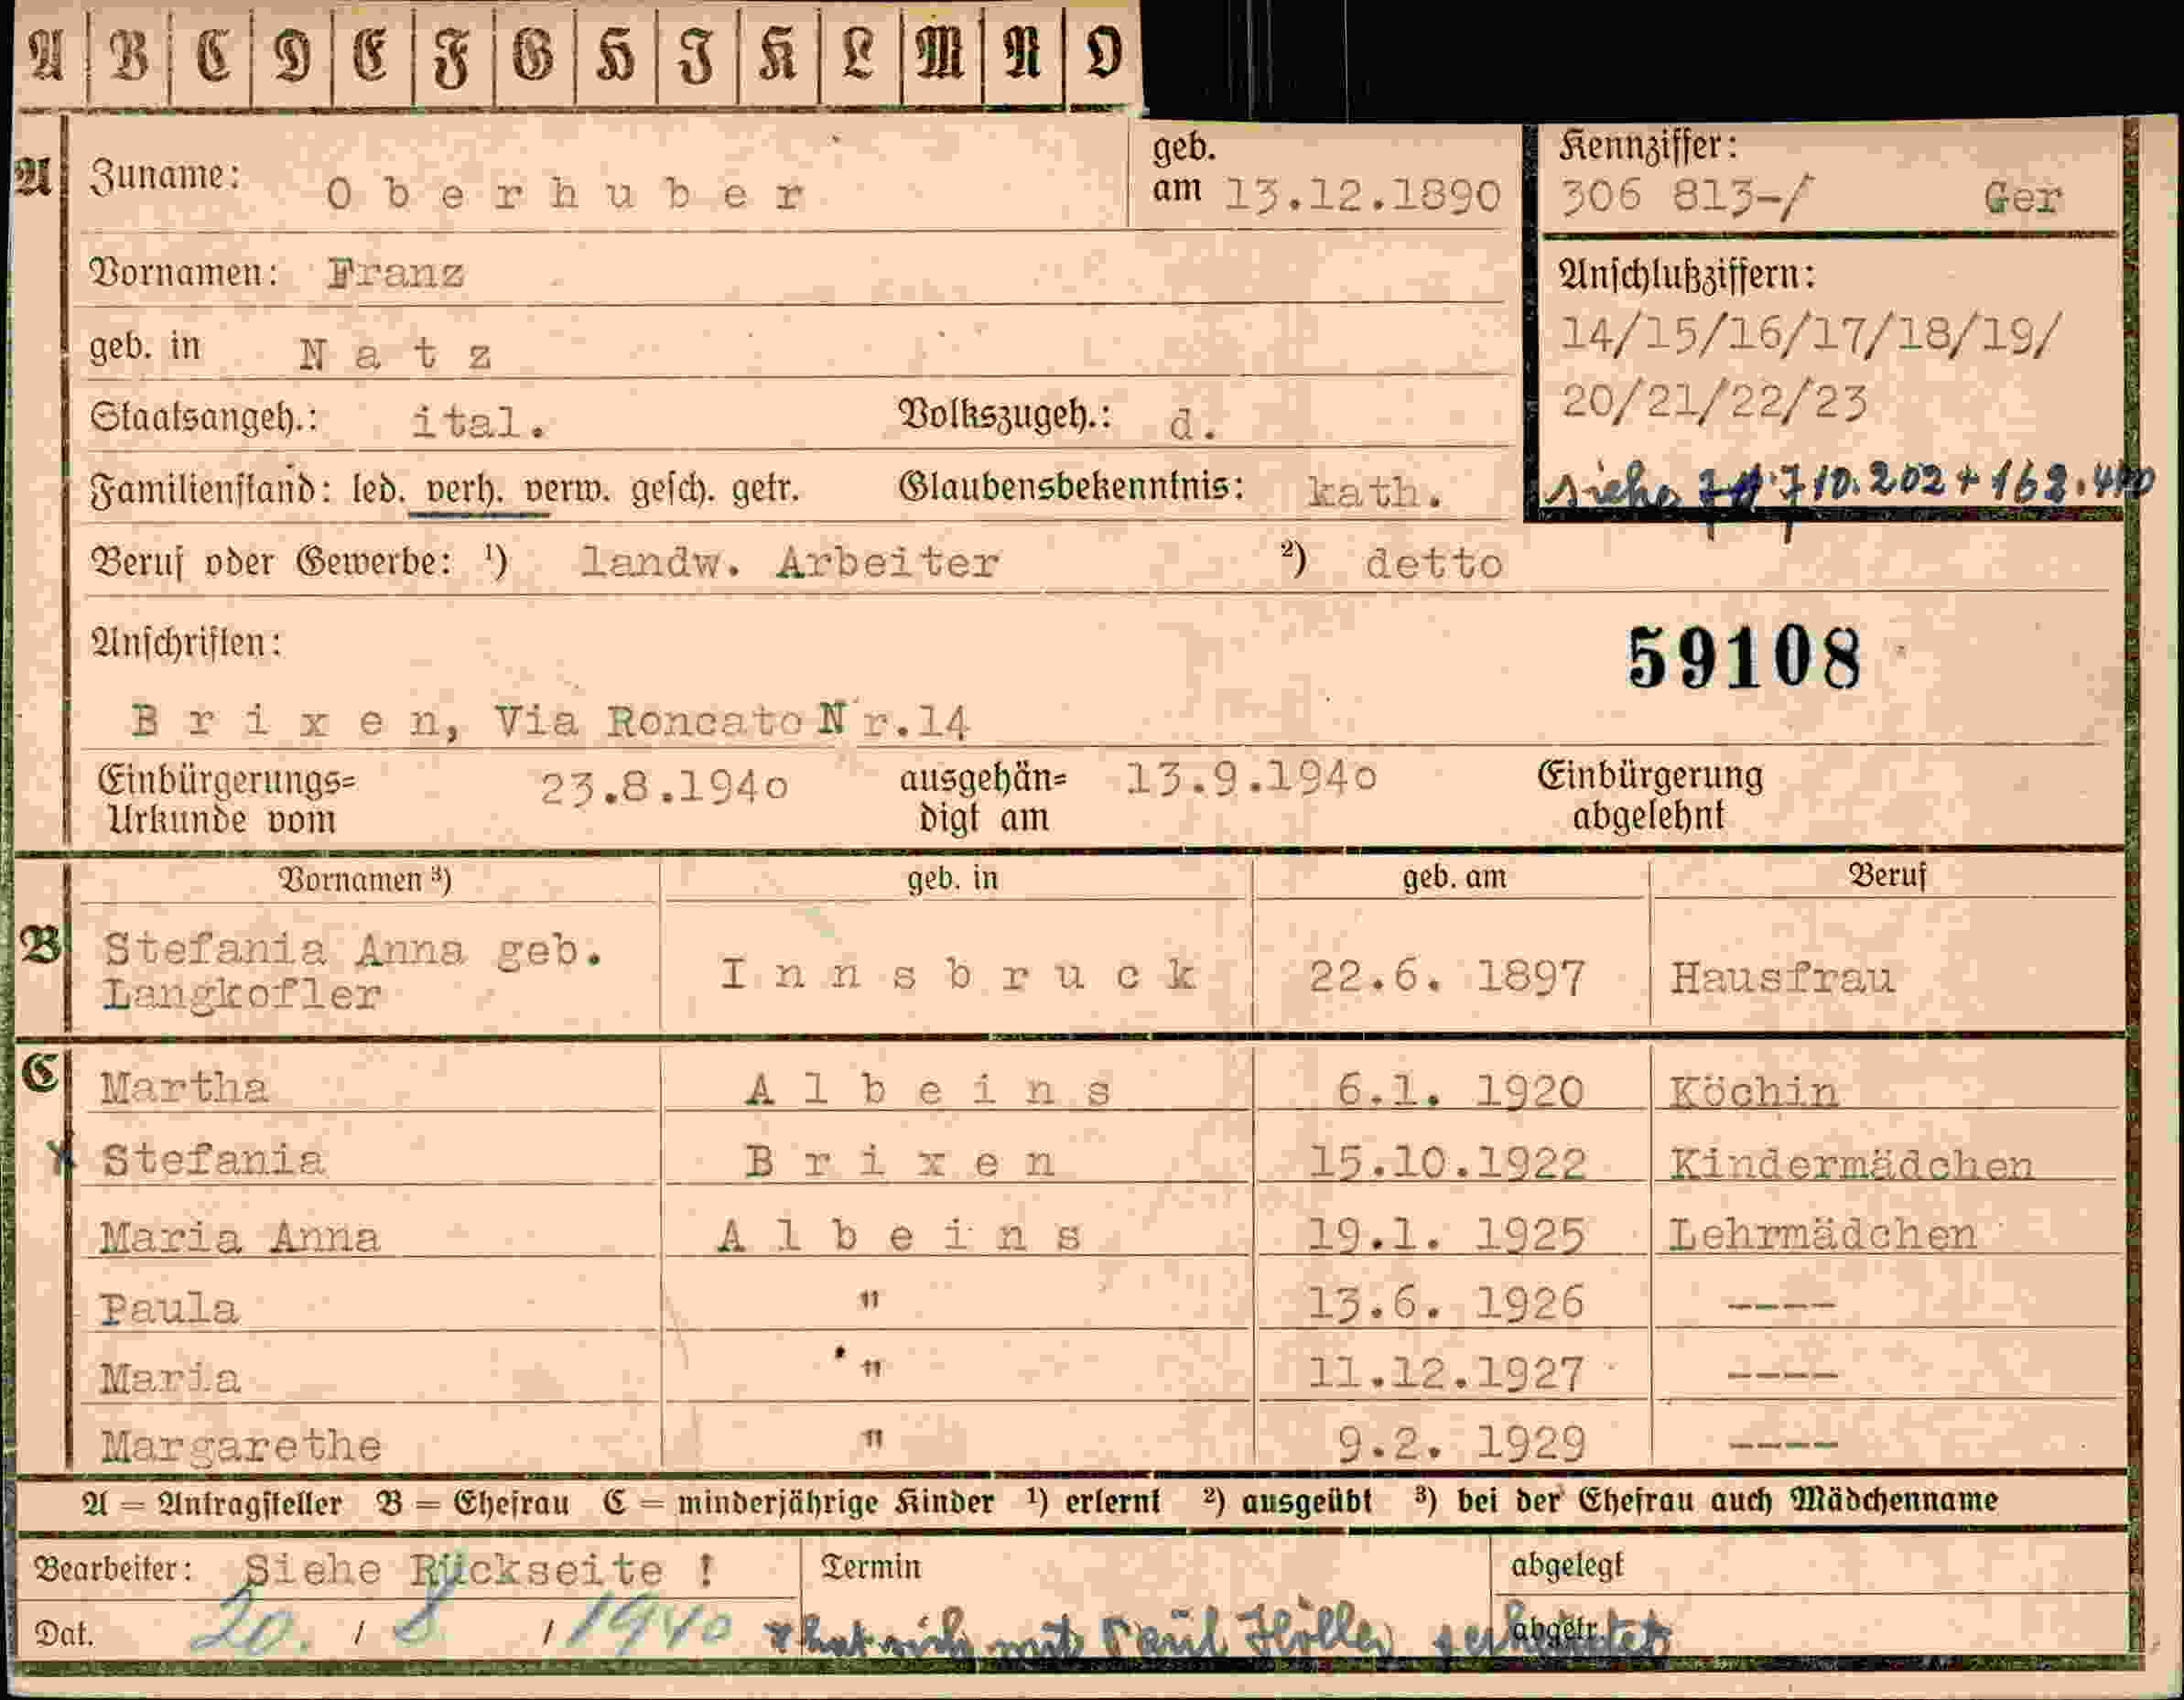 A B C D E F G H I K L M N O
A Zuname: Oberhuber geb. am 13.12.1890
Kennziffer:
306 813-/ Ger
Vornamen: Franz
Anschlußziffern:
14/15/16/17/18/19/
20/21/22/23
geb. in Natz
Staatsangeh.: ital. Volkszugeh.: d.
Familienstand: led. verh. verw. gesch. getr. Glaubensbekenntnis: kath.
siehe 710.202 +
Beruf oder Gewerbe: ¹) landw. Arbeiter ²) detto
Anschriften:
59108
Brixen, Via Roncato Nr.14
Einbürgerungs= 23.8.1940 ausgehän= 13.9.1940 Einbürgerung
Urkunde vom digt am abgelehnt
Vornamen ³) geb. in geb. am Beruf
B Stefania Anna geb. Innsbruck 22.6. 1897 Hausfrau
Langkofler
C Martha Albeins 6.1. 1920 Köchin
x Stefania Brixen 15.10.1922 Kindermädchen
Maria Anna Albeins 19.1. 1925 Lehrmädchen
Paula " 13.6. 1926 ----
Maria " 11.12.1927 ----
Margarethe " 9.2. 1929 ----
A = Antragsteller B = Ehefrau C = minderjährige Kinder ¹) erlernt ²) ausgeübt ³) bei der Ehefrau auch Mädchenname
Bearbeiter: Siehe Rückseite ! Termin abgelegt
Dat. 20. / 8 / 1940 x hat sich mit Paul Höller abgetr.